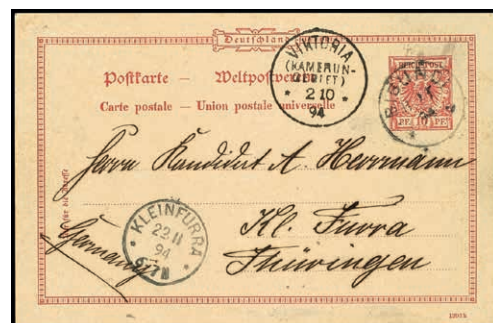 Deutschland
Postkarte — Weltpostverein
Carte postale — Union postale universelle
VIKTORIA
(KAMERUN-
GEBIET)
* 2 10 *
94
Herrn Kandidat A. Herrmann
Kl. Furra
Thüringen
Germany
* KLEINFURRA *
22 11
94